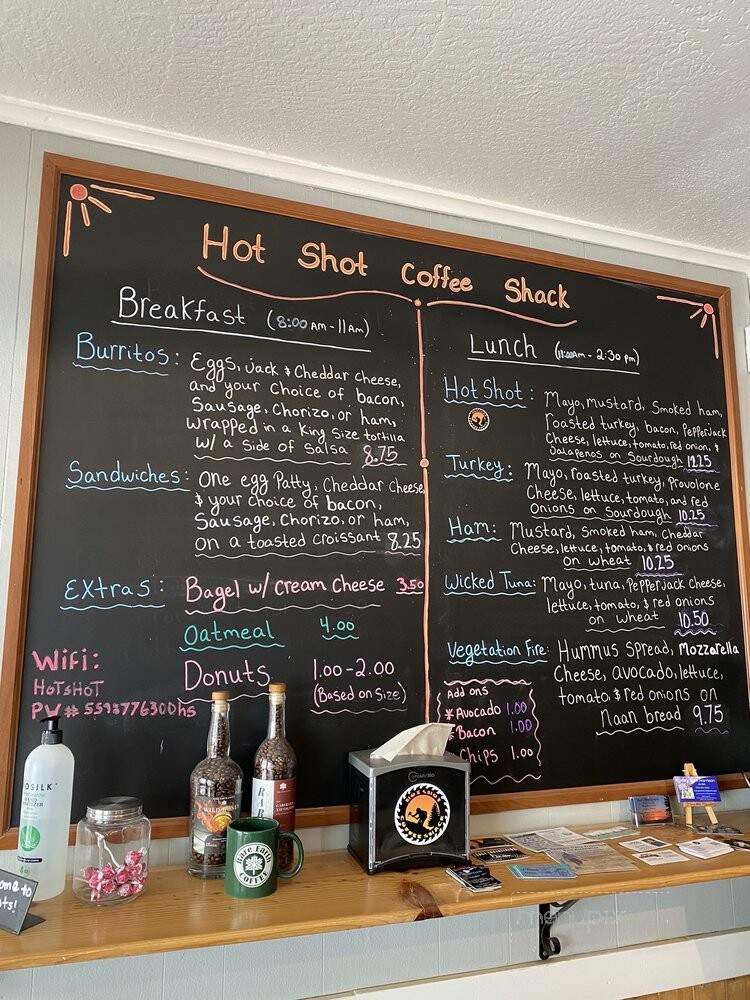 Hot Shot Coffee Shack
Breakfast (8:00 AM - 11 AM)
Burritos: Eggs, Jack & Cheddar cheese,
and your choice of bacon,
Sausage, Chorizo, or ham,
wrapped in a King Size tortilla
w/ a side of salsa 8.75
Sandwiches: One egg Patty, Cheddar cheese
& your choice of bacon,
Sausage, Chorizo, or ham,
on a toasted croissant 8.25
Extras: Bagel w/ cream Cheese 3.50
Oatmeal 4.00
Donuts 1.00-2.00
(Based on Size)
Wifi:
HOTSHOT
PW# 5593776300hs
Lunch (11:00am - 2:30 pm)
Hot Shot: Mayo, mustard, Smoked ham,
roasted turkey, bacon, Pepperjack
Cheese, lettuce, tomato, red onion, &
Jalapenos on Sourdough 12.25
Turkey: Mayo, roasted turkey, provolone
Cheese, lettuce, tomato, and red
Onions on Sourdough 10.25
Ham: Mustard, smoked ham, cheddar
Cheese, lettuce, tomato, & red onions
on wheat 10.25
Wicked Tuna: Mayo, tuna, Pepperjack cheese,
lettuce, tomato, & red onions
on wheat 10.50
Vegetation Fire: Hummus Spread, Mozzarella
Cheese, avocado, lettuce,
tomato & red onions on
Naan bread 9.75
Add ons
*Avocado 1.00
*Bacon 1.00
*Chips 1.00
RAR
Rare Earth
COFFEE